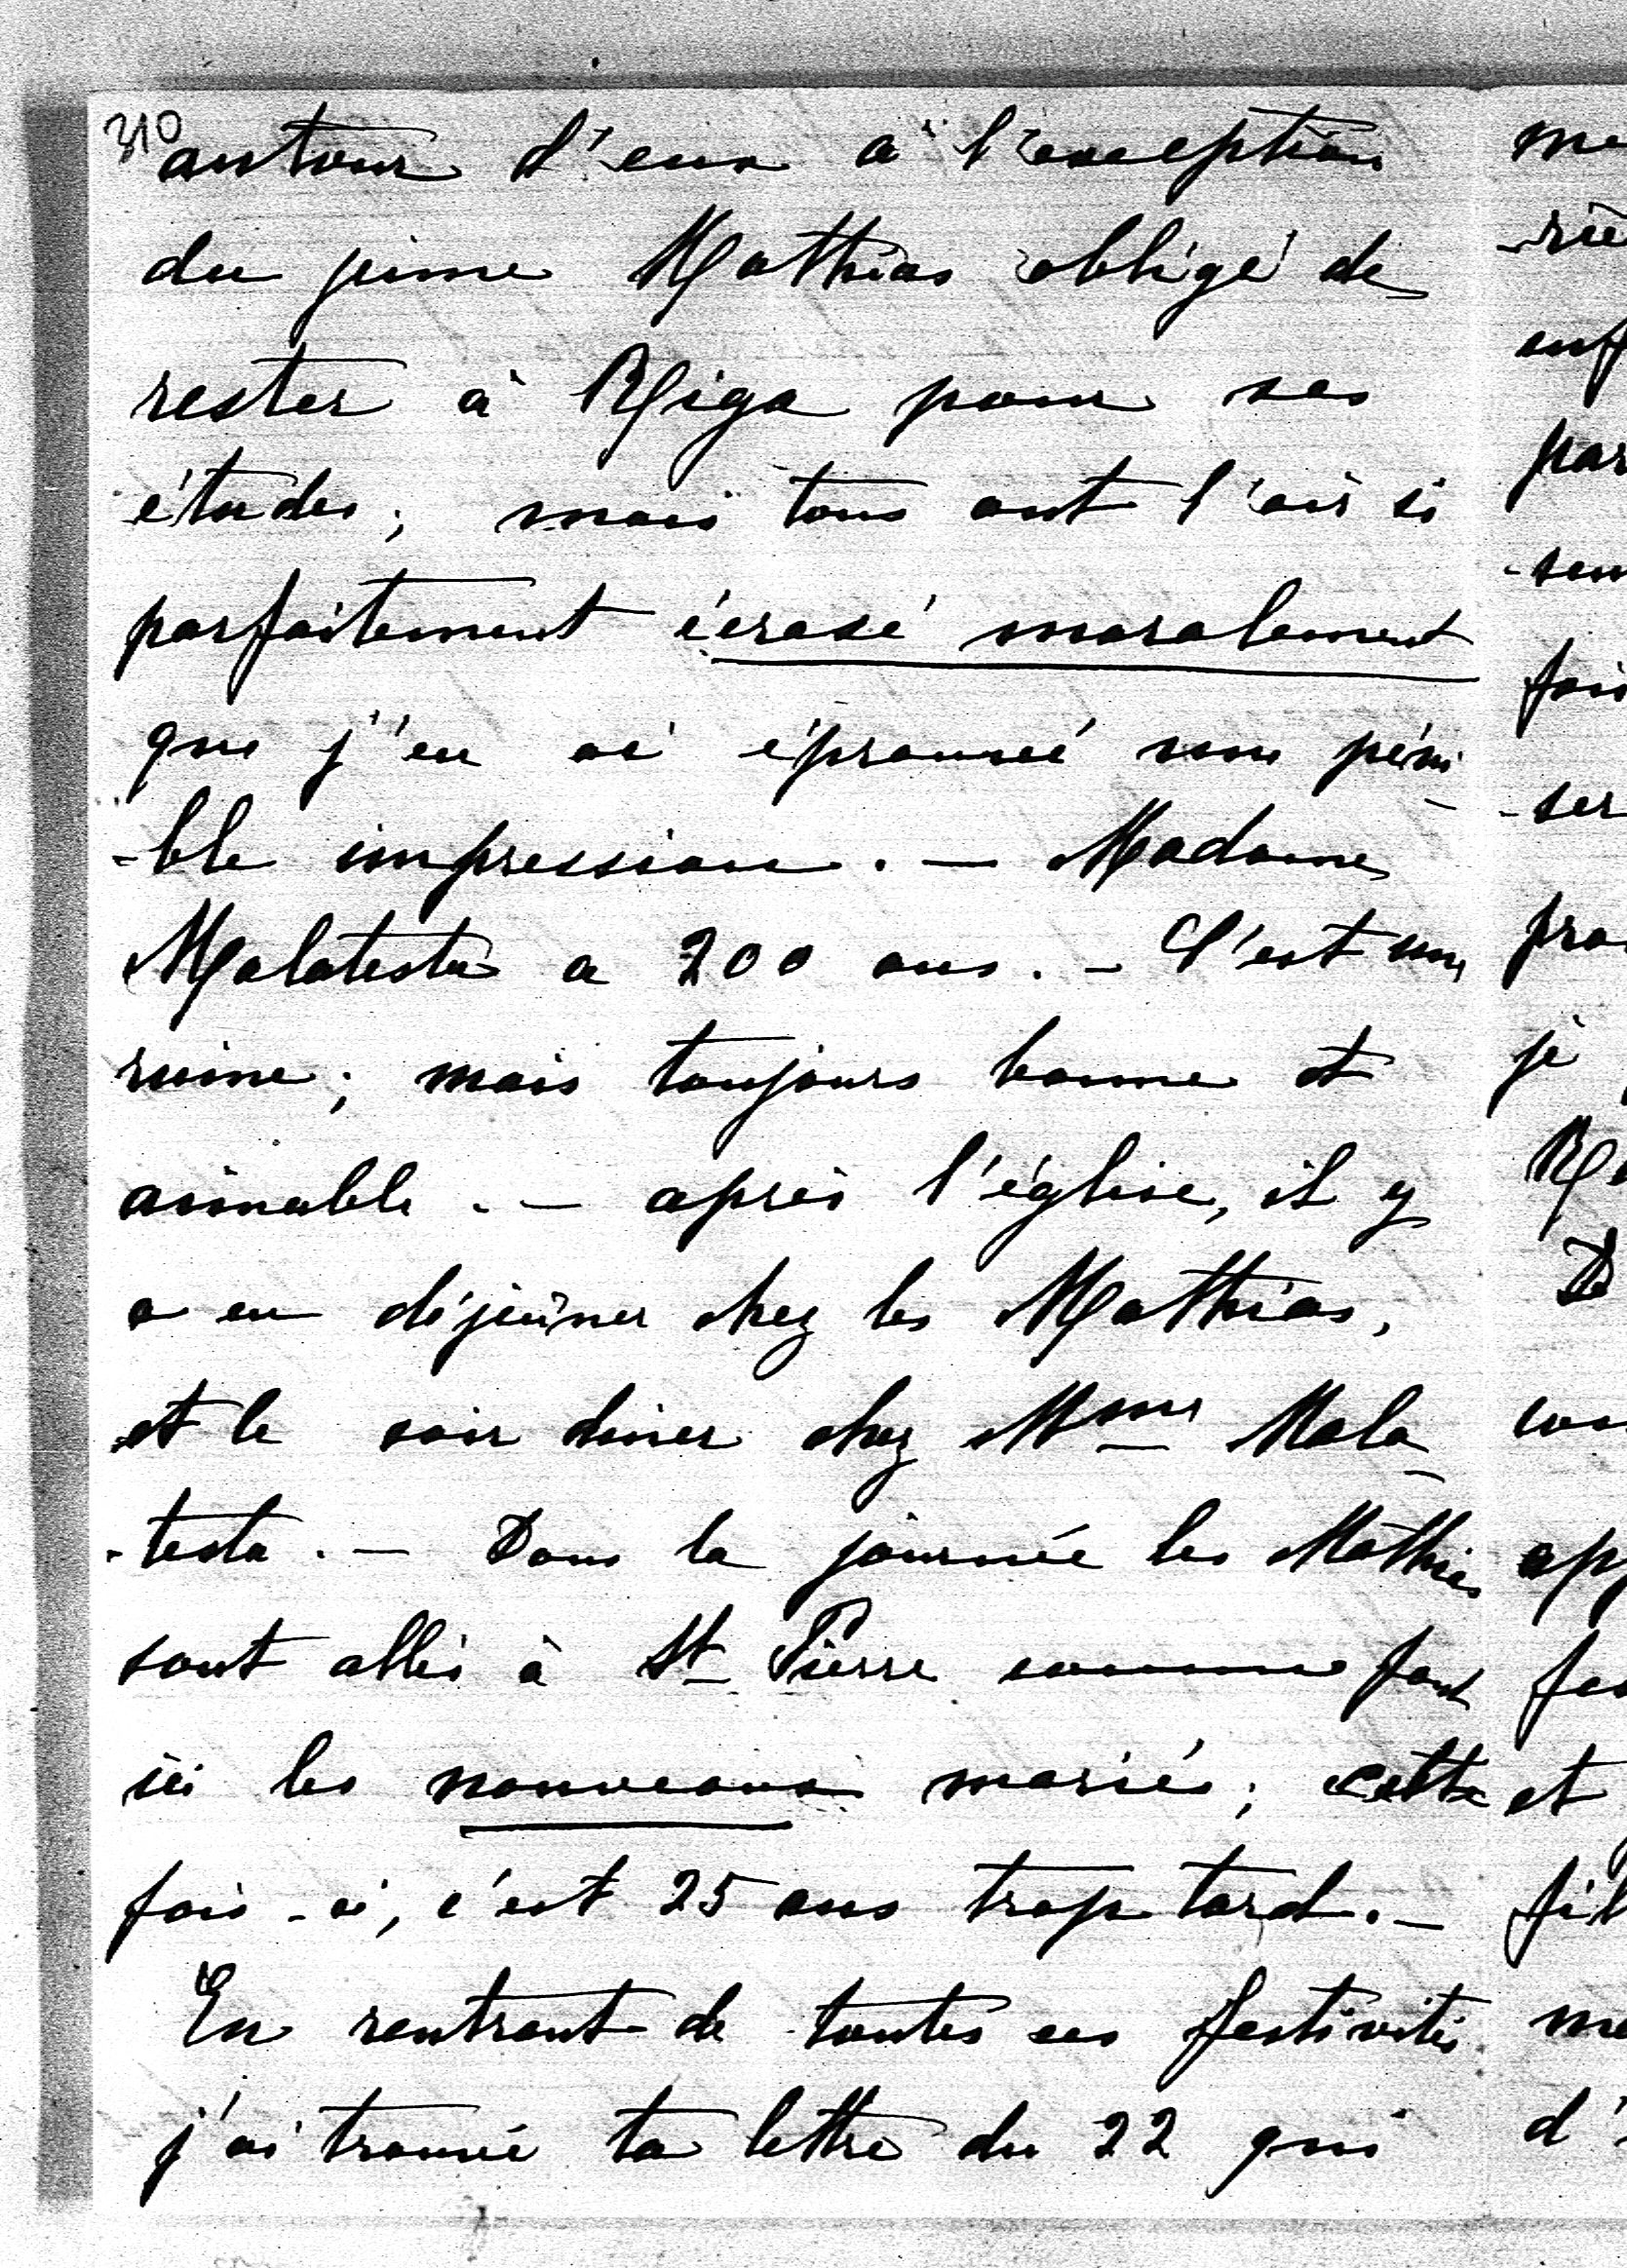 310
autour d'eux à l'exception
du jeune Mathias obligé de
rester à Riga pour ses
études; mais tous ont l'air si
parfaitement écrasé moralement
que j'en ai éprouvé une péni
-ble impression. — Madame
Malatesta a 200 ans. — C'est une
ruine; mais toujours bonne et
aimable. — après l'église, il y
a eu déjeûner chez les Mathias,
et le soir diner chez Mme Mala
-testa. — Dans la journée les Mathias
sont allés à St Pierre comme font
ici les nouveaux mariés; cette
fois-ci, c'est 25 ans trop tard. —
En rentrant de toutes ces festivités
j'ai trouvé ta lettre du 22 qui